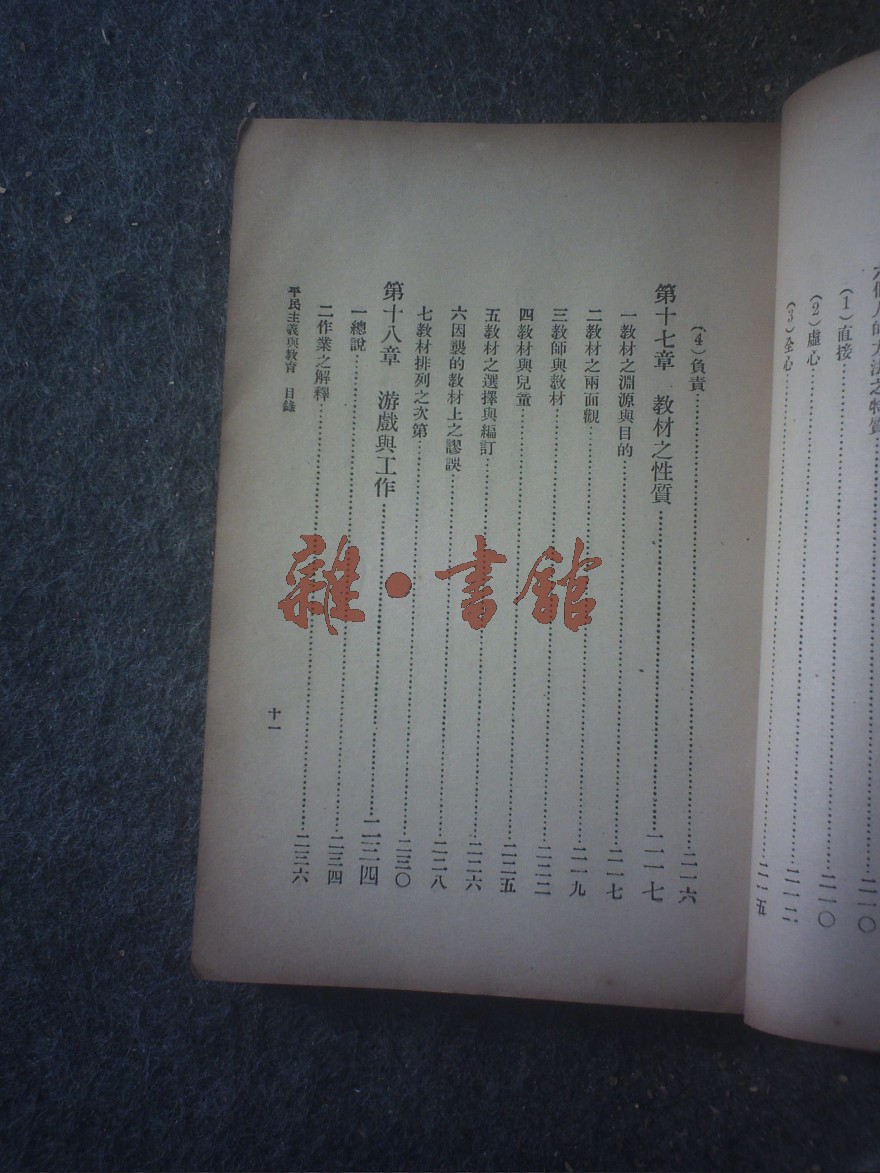 六個人的方法之特質……二一〇
(1)直接……二一〇
(2)虛心……二一二
(3)全心……二一五
(4)負責……二一六
第十七章 教材之性質……二一七
一教材之淵源與目的……二一七
二教材之兩面觀……二一九
三教師與教材……二二二
四教材與兒童……二二五
五教材之選擇與編訂……二二六
六因襲的教材上之謬誤……二二八
七教材排列之次第……二三〇
第十八章 游戲與工作……二三四
一總說……二三四
二作業之解釋……二三六
平民主義與教育 目錄
十一
雜·書館